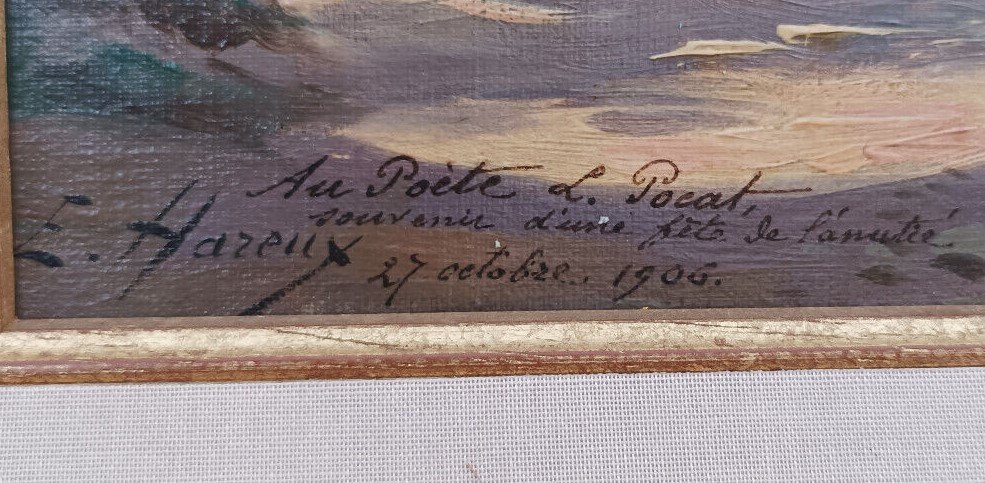 Au Poète L. Pocat,
souvenir d'une fête de l'amitié
E. Hareux
27 octobre. 1906.